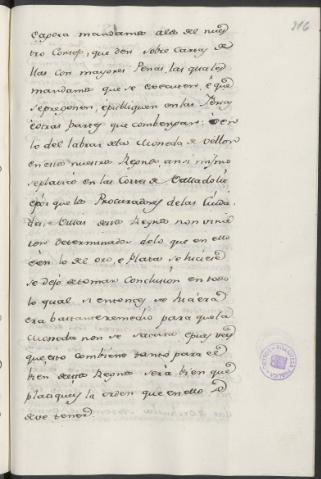 316
capera mandamos a los del nues
tro Consejo, que den sobre Cartas de
llas con mayores Penas, las quales
mandamos que se executen è que
se pregonen, epubliquen en las
otras partes que combengan: è en
lo del labrar dela Moneda de Vellon
en estos nuestros Reynos, ansi mismo
seplaticò en las Cortes de Valladolid
è por que los Procuradores de las Ciuda
des, è Villas destos Reynos non vinie
ron determinados delo que en ello
è en lo del oro, è Plata se hiciese
se dejò detomar Conclusion en todo
lo qual si entonces se hiciera
era bastante remedio para que la
Moneda non se sacara è pues veis
que esto combiene tanto para el
bien destos Reynos serà bien que
platiqueis la orden que en ello se
deve tener.